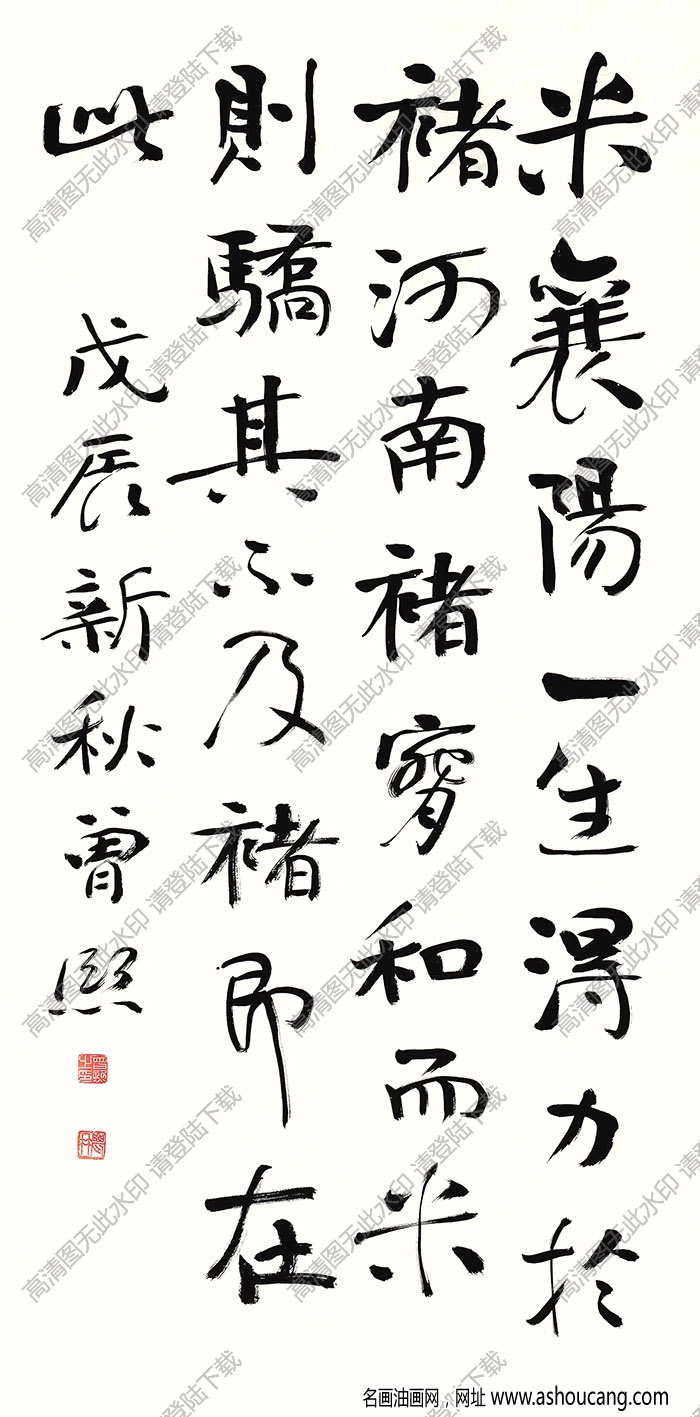 米襄陽一生得力於
褚河南褚和而米
則驕其不及褚即在
此
戊辰新秋曾熙
曾熙之印
高清图无此水印 请登陆下载
名画油画网，网址 www.ashoucang.com